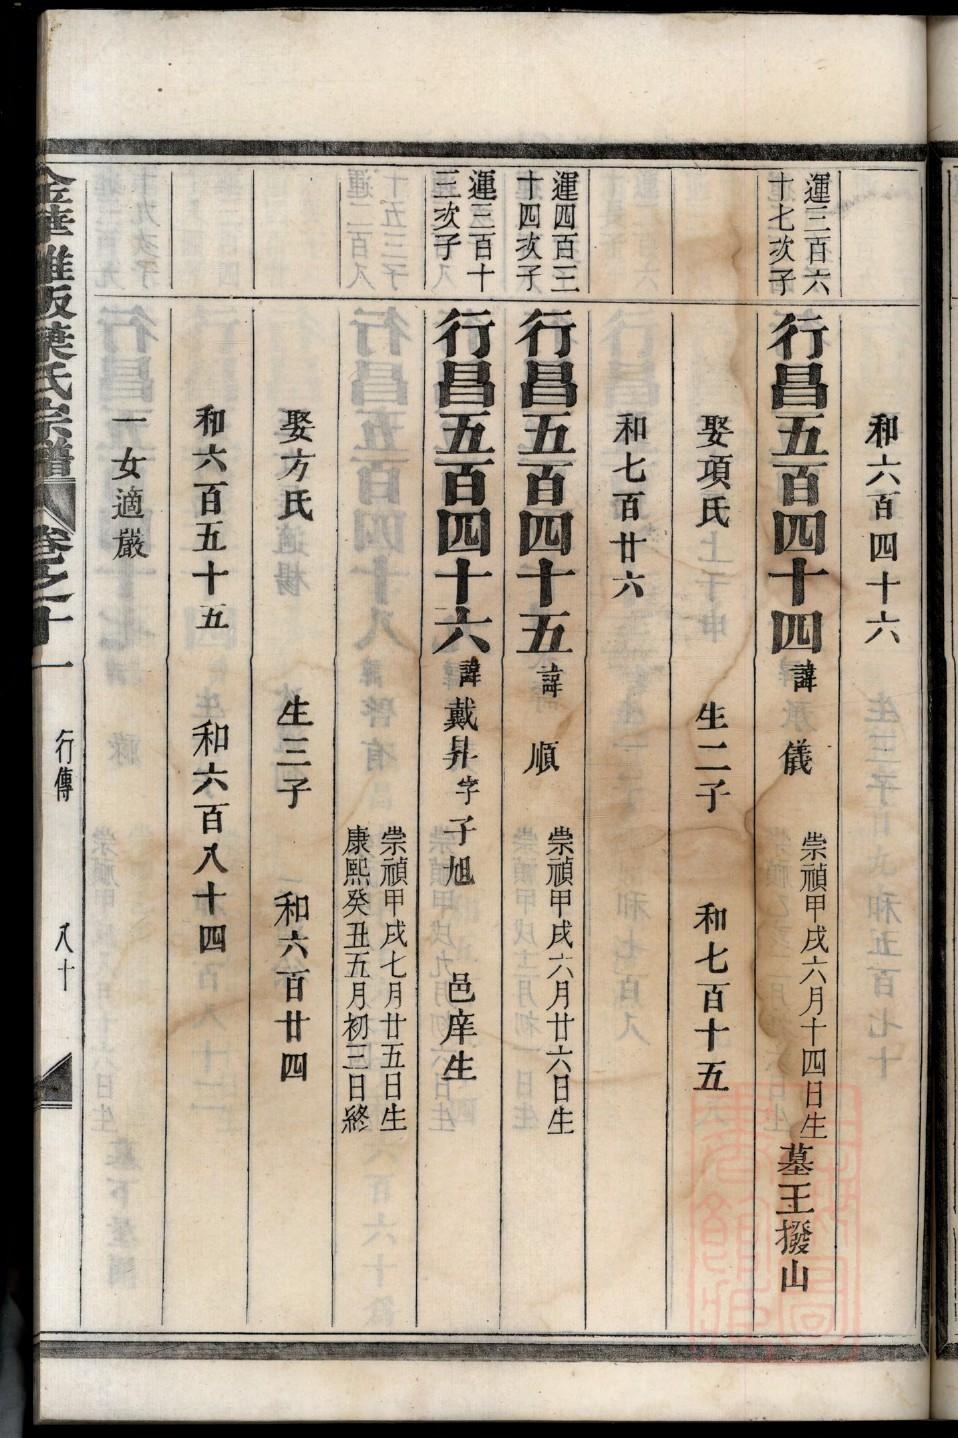 和六百四十六
運三百六
十七次子
行昌五百四十四 諱 儀
崇禎甲戌六月十四日生
墓王撥山
娶項氏 生二子 和七百十五
和七百廿六
運四百三
十四次子
行昌五百四十五 諱 順
崇禎甲戌六月廿六日生
運三百十
三次子
行昌五百四十六 諱戴昇字子旭 邑庠生
崇禎甲戌七月廿五日生
康熙癸丑五月初三日終
娶方氏 生三子 和六百廿四
和六百五十五 和六百八十四
一女適嚴
金華雅畈葉氏宗譜 卷之十一 行傳 八十